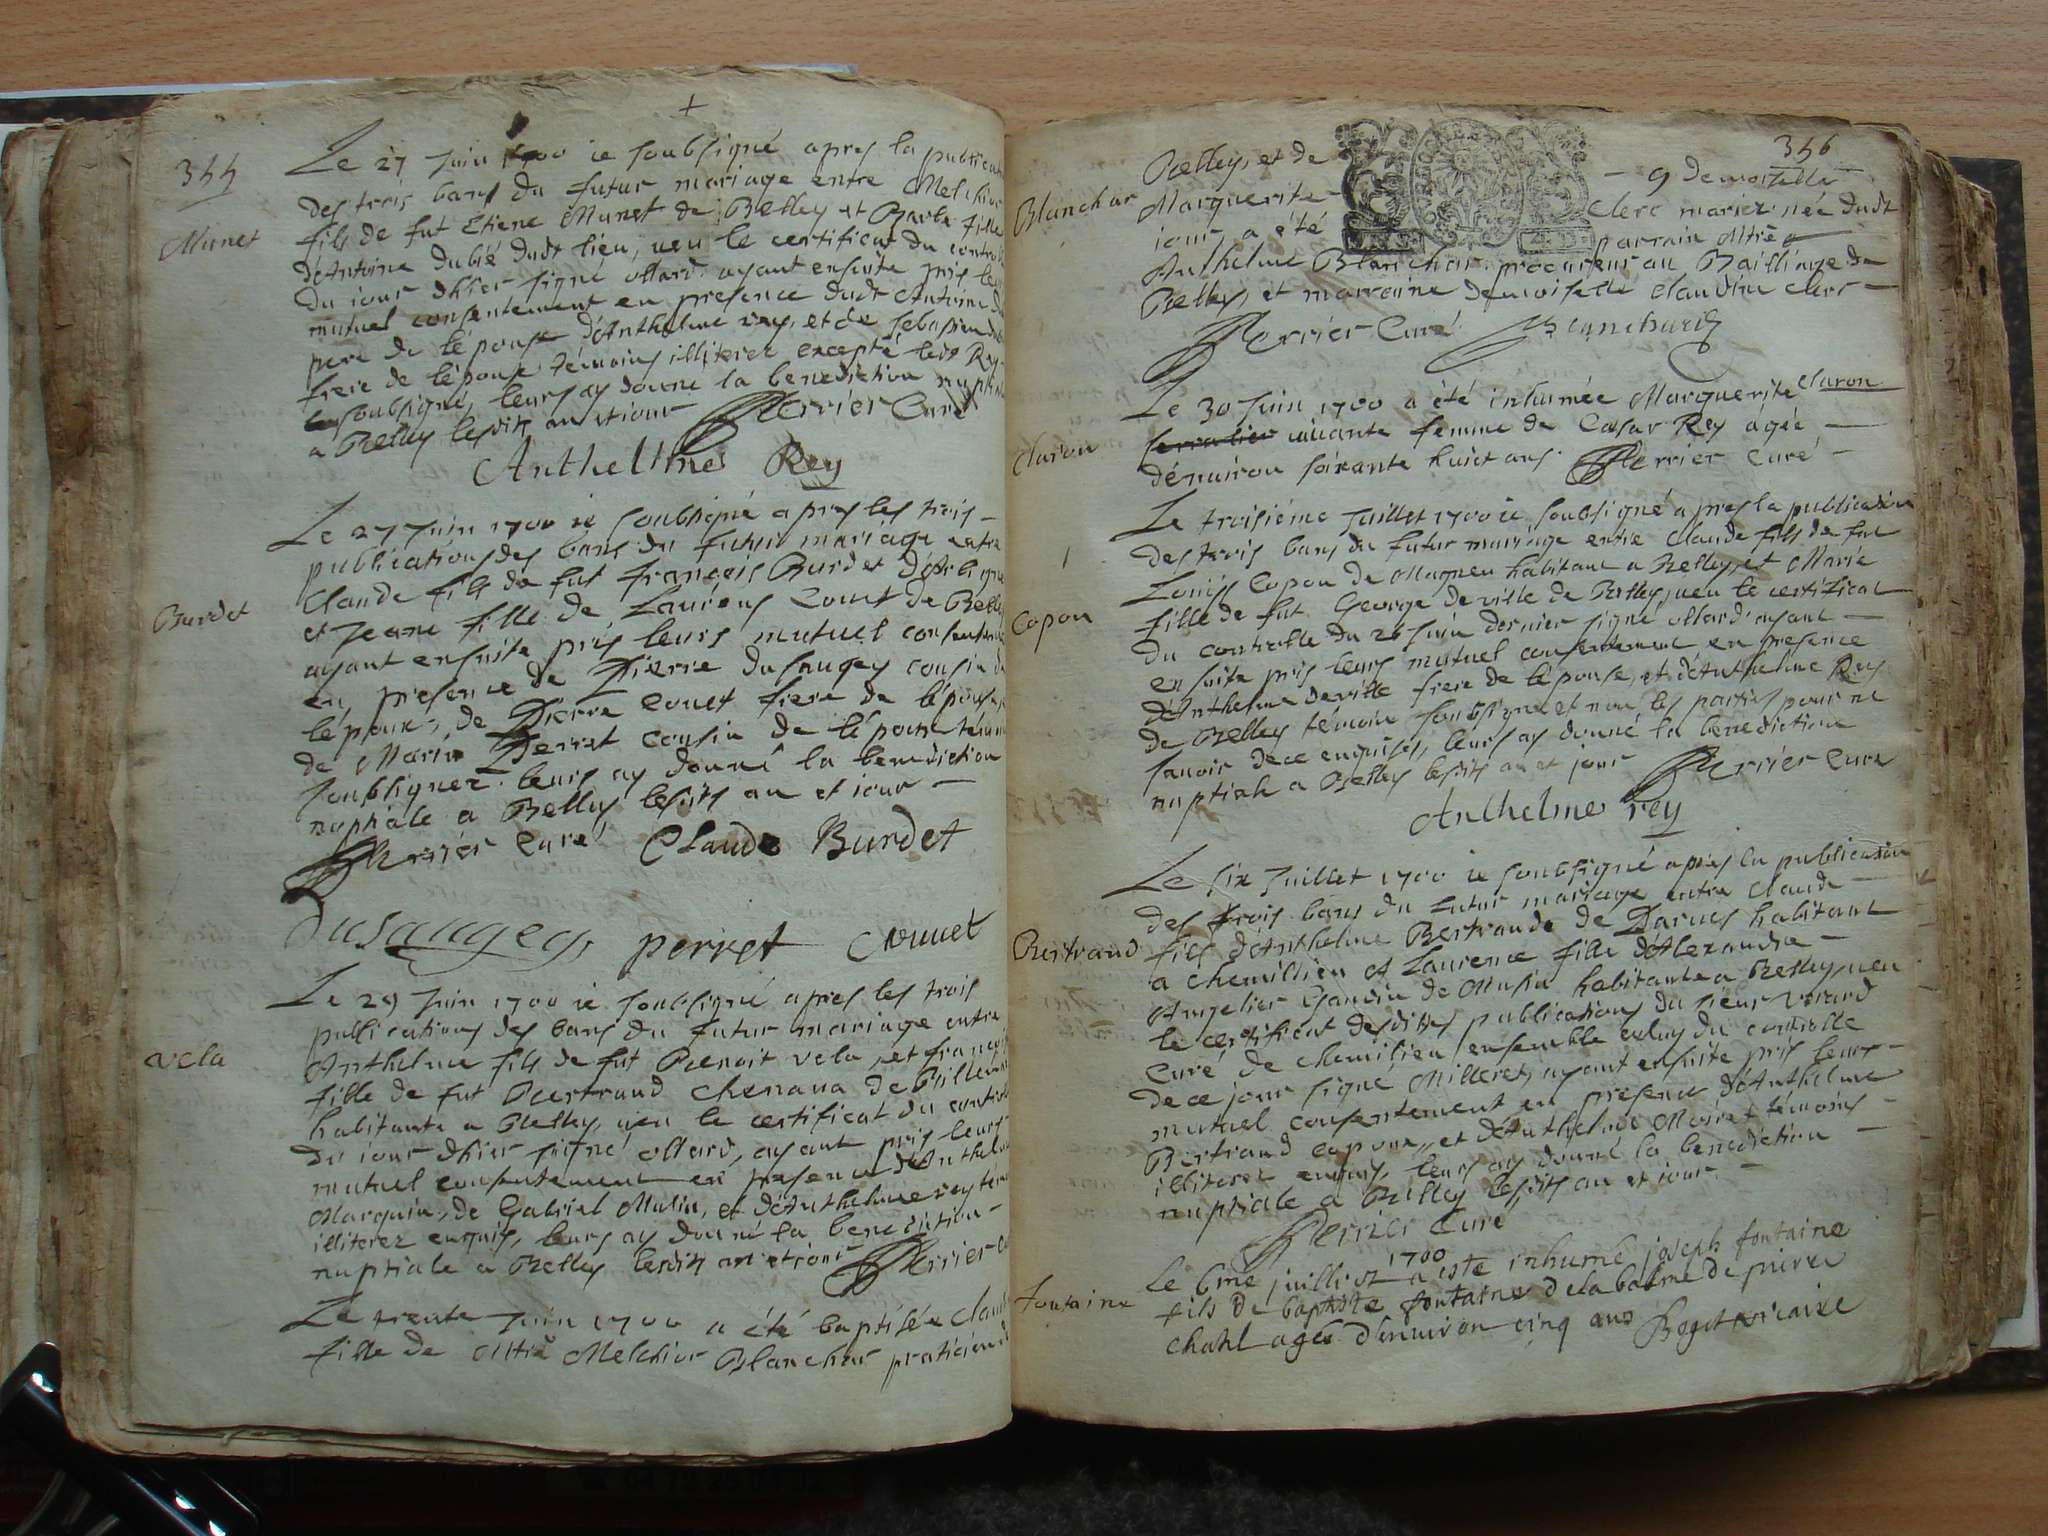 355
+
Le 27 Juin 1700 ie soubsigné apres la publicati
des trois bans du futur mariage entre Melchior
Munet
fils de fut Etiene Munet de Belley et Barbe fille
d'Antoine Dubié dudt lieu, ueu le certificat du control
du iour dhier signé ollard. ayant ensuite pris leur
mutuel consentement en presence dudt Antoine du
pere de l'épouse d'Anthelme rey, et de sebastien dub
frere de l'épouse témoins illiterez excepté ledt Rey
soubsigné, leurs ay donné la benediction nuptia
a Belley lesdits an et iour Perrier Curé
Anthelme Rey
Le 27 Juin 1700 ie soubsigné apres les trois
publications des bans du futur mariage entre
Claude fils de fut françois Burdet
Burdet
et Jeane fille de Laurens Couet de Belley
ayant ensuite pris leurs mutuel consenteme
en presence de Pierre dusaugey cousin de
l'époux, de Pierre Couet frere de l'épouse
de Marin Perret cousin de l'épouse témoin
soubsignez leurs ay donné la benediction
nuptiale a Belley lesdits an et iour
Perrier Curé Claude Burdet
Dusaugey perret Couuet
Le 29 Juin 1700 ie soubsigné apres les trois
publications des bans du futur mariage entre
vela
Anthelme fils de fut Benoit vela, et françoise
fille de fut Bertrand Chenaua de
habitante a Belley, ueu le certificat du control
du iour dhier signé ollard, ayant pris leurs
mutuel consentement en presence d'Anthelme
Marquin, de Gabriel Mulin, et d'Anthelme rey tem
illiterez enquis, leurs ay donné la benediction
nuptiale a Belley lesdits an et iour Perrier
Le trente Juin 1700 a été baptisée Claud
fille de Mtre Melchior Blanchar praticien d
356
Belley, et de demoiselle
Blanchar
Marguerite Clerc mariez née dudt
iour, a été parrain Mtre
Anthelme Blanchar procureur au Bailliage de
Belley, et marraine demoiselle Claudine Clerc
Perrier Curé Blanchard
Le 30 Juin 1700 a été inhumée Marguerite Claron
Claron
uiuante femme de Cesar Rey ágée
d'enuiron soixante huict ans. Perrier curé
Le troisiéme Juillet 1700 ie soubsigné apres la publication
des trois bans du futur mariage entre Claude fils de fut
Louis Copon de Magneu habitant a Belley, et Marie
Copon
fille de fut George deville de Belley, ueu le certificat
du controlle du 26 Juin dernier signé ollard ayant
ensuite pris leurs mutuel consentement en presence
d'Anthelme deville frere de l'épouse, et d'Anthelme Rey
de Belley témoin soubsigné et non les parties pour ne
sauoir de ce enquises, leurs ay donné la benediction
nuptiale a Belley lesdits an et jour Perrier Curé
Anthelme rey
Le six Juillet 1700 ie soubsigné apres la publication
des trois bans du futur mariage entre Claude
Bertrand
fils d'Anthelme Bertrande de Parues habitant
a Chemillieu et Laurence fille d'Alexandre
Angelier Gandin de Musin habitante a Belley, ueu
le certificat desdites publications du sieur Virard
Curé de Chemilieu ensemble celuy du controlle
de ce jour signé Milleret, ayant ensuite pris leurs
mutuel consentement en presence d'Anthelme
Bertrand et d'Anthelme Moiret témoins
illiterez enquis, leurs ay donné la benediction
nuptiale a Belley lesdits an et iour.
Perrier Curé
1700
Le 6me juilliet a este inhumé joseph fontaine
Fontaine
fils de baptiste fontaine de la balme de pierre
chatel agé d'enuiron cinq ans Boget vicaire